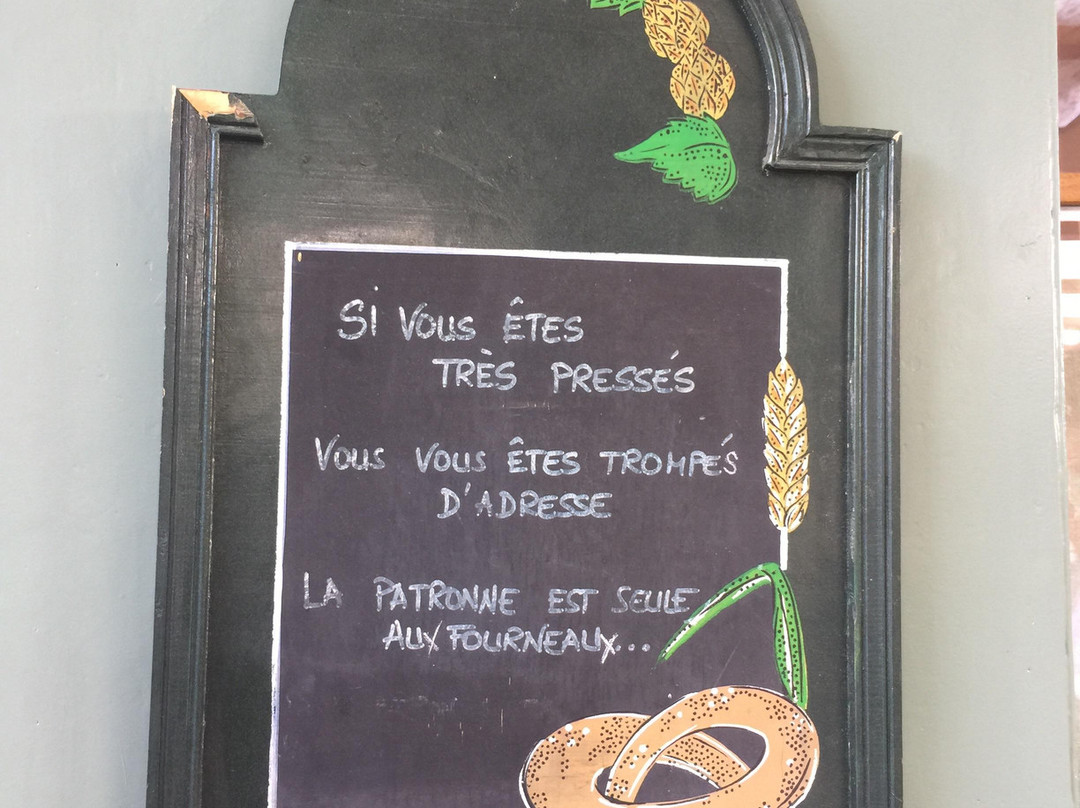 Si VOUS ÊTES
TRÈS PRESSÉS
VOUS VOUS ÊTES TROMPÉS
D'ADRESSE
LA PATRONNE EST SEULE
AUX FOURNEAUX...